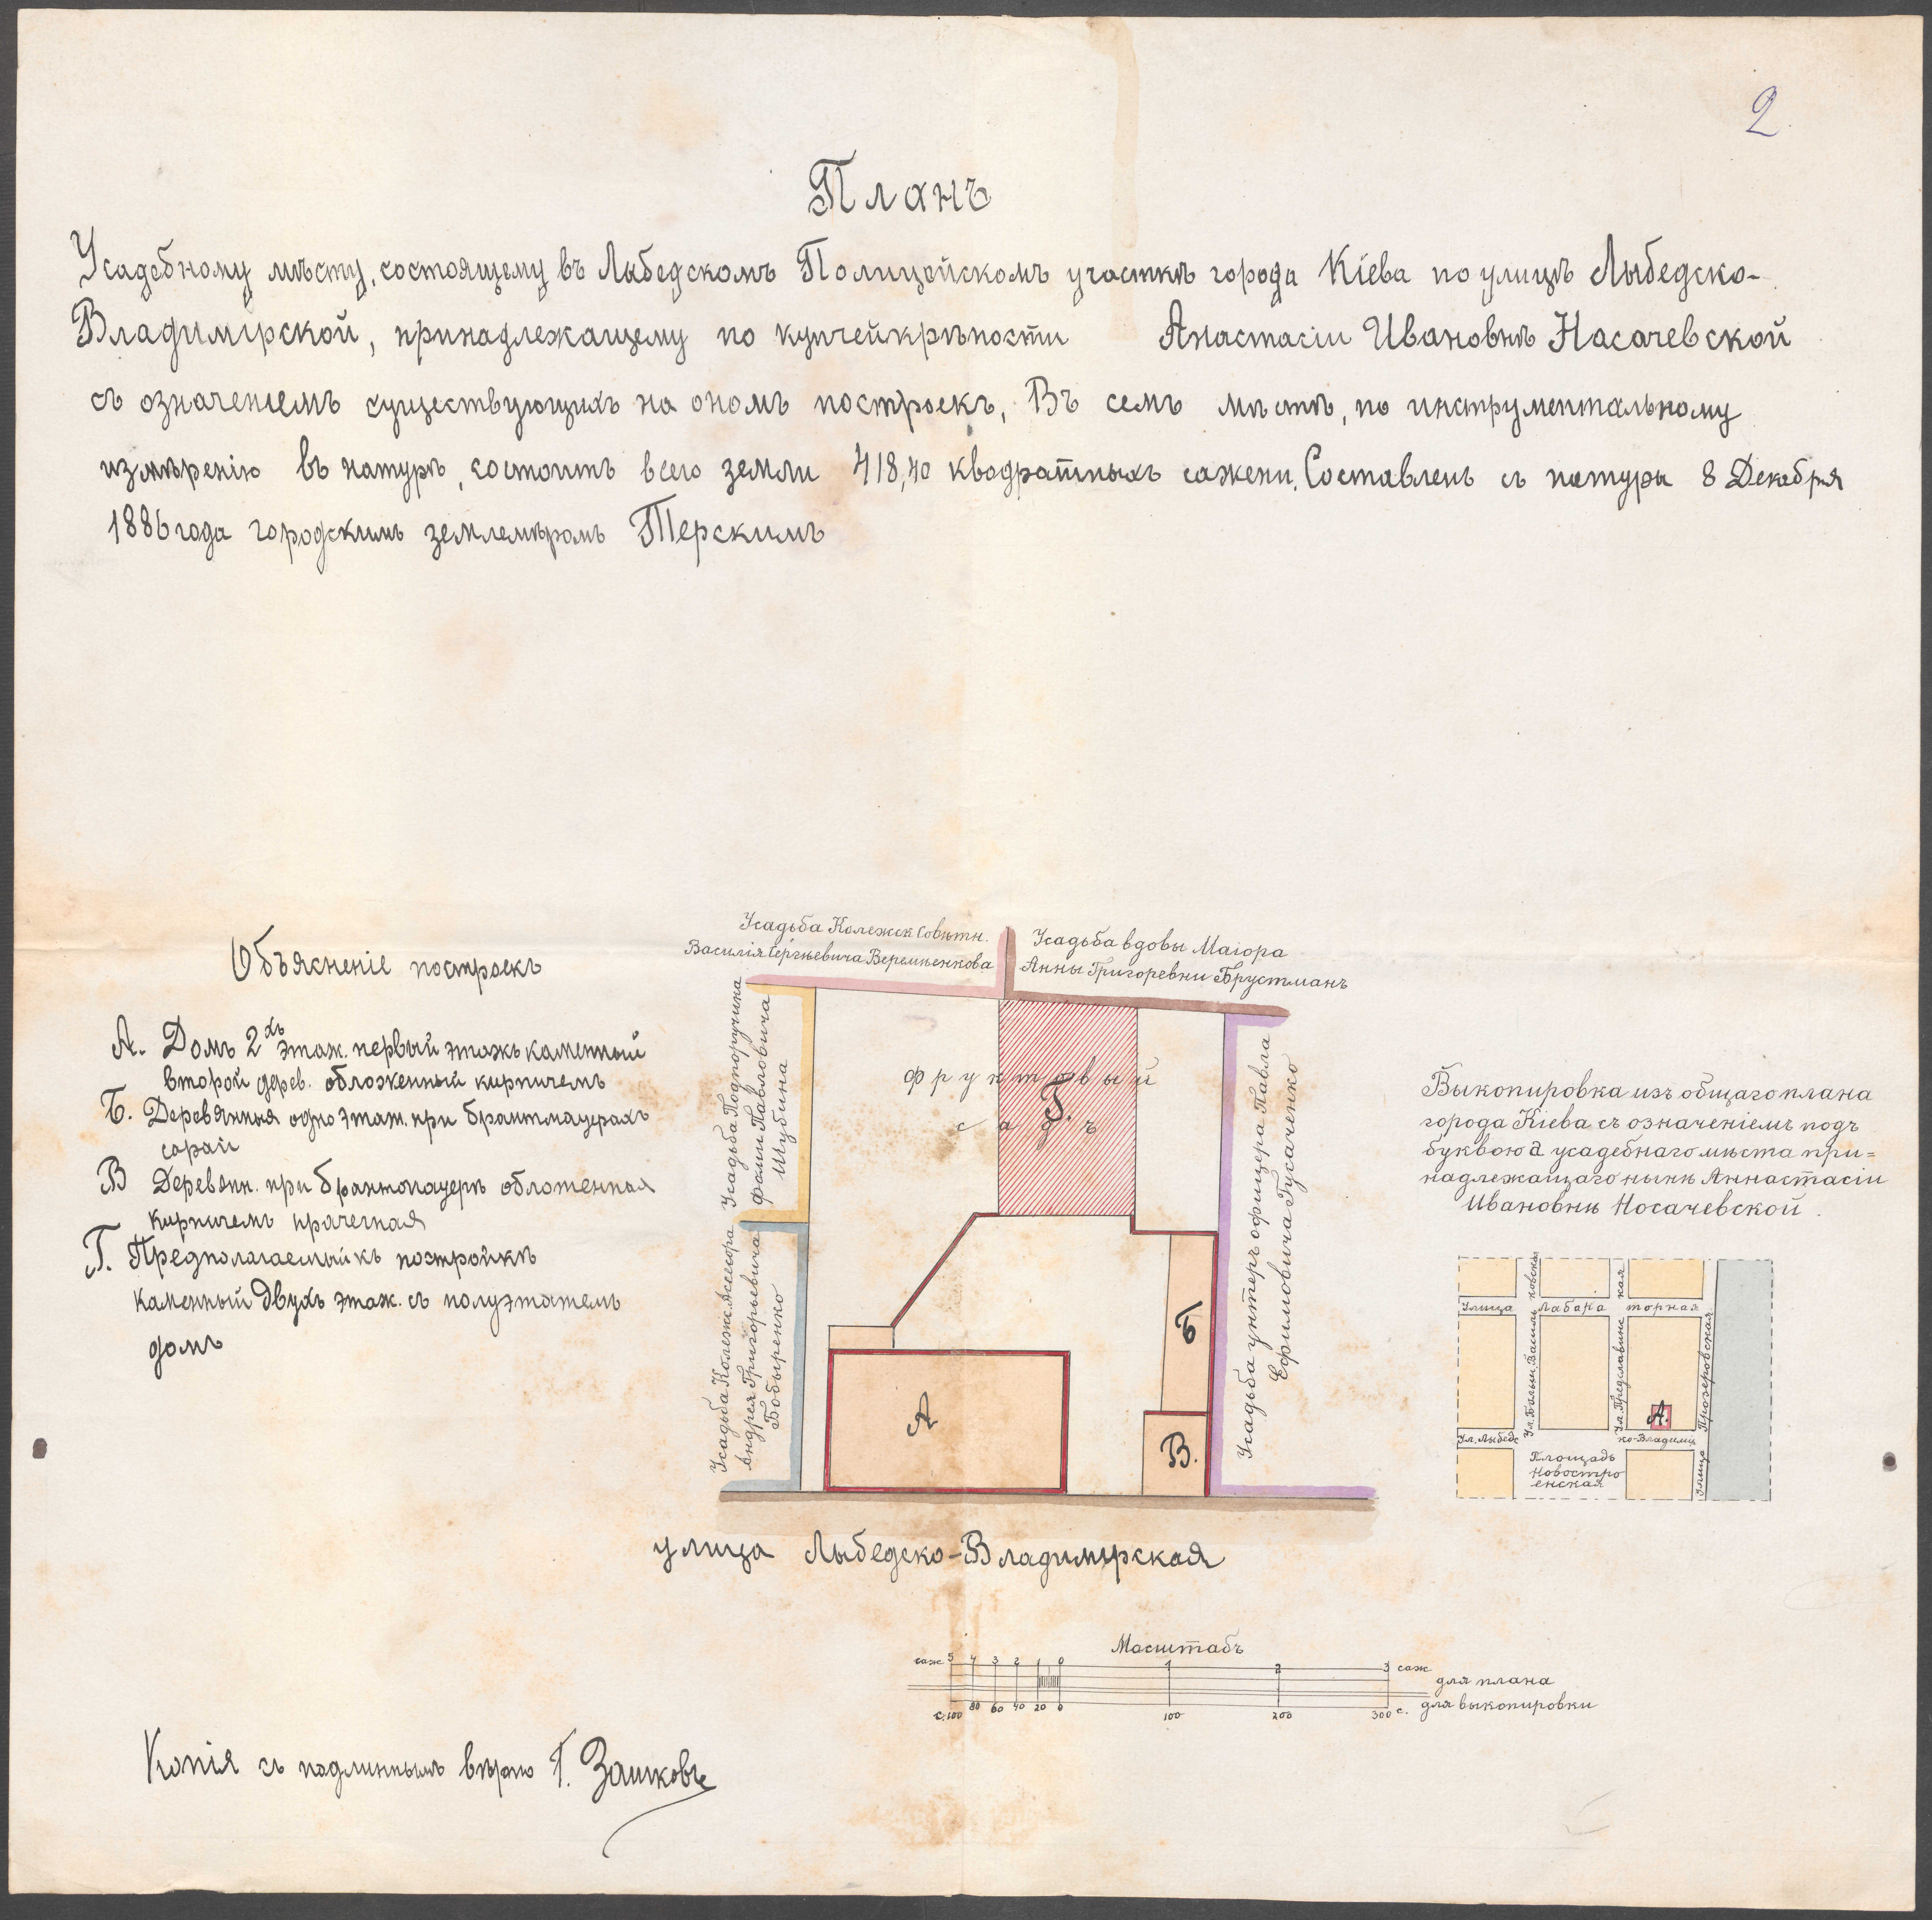 2
Планъ
Усадебному мѣсту, состоящему въ Лыбедскомъ Полицейскомъ участкѣ города Кіева по улицѣ Лыбедско-
Владимірской, принадлежащему по купчейкрѣпости Анастасіи Ивановнѣ Насачевской
съ означеніемъ существующихъ на ономъ построекъ, Въ семъ мѣстѣ, по инструментальному
измѣренію въ натурѣ, состоитъ всего земли 418,40 квадратныхъ сажени. Составленъ съ натуры 8 Декабря
1886 года городскимъ землемѣромъ Терскимъ
Объясненіе построекъ
А. Домъ 2хъ этаж. первый этажъ каменный
второй дерев. обложенный кирпичемъ
Б. Деревянныя одно этаж. при брантмауерахъ
сараи
В Деревянн. при брантмауерѣ обложенная
кирпичемъ прачечная
Г. Предполагаемый къ постройкѣ
каменный двухъ этаж. съ полуэтажемъ
домъ
Усадьба Колежск Совѣтн.
Василія Сергѣевича Веремѣенкова
Усадьба вдовы Маіора
Анны Григоревни Брустманъ
Усадьба Подпоручика
фомы Павловича
Шубина
Усадьба Колежс. Ассесора
Андрея Григорьевича
Бобыренко
фруктовый
садъ
Г.
А
Б
В.
Усадьба унтеръ офицера Павла
Ефимовича Гусаченко
улица Лыбедско-Владимірская
Выкопировка изъ общаго плана
города Кіева съ означеніемъ подъ
буквою а усадебнаго мѣста при=
надлежащаго нынѣ Аннастасіи
Ивановнѣ Носачевской.
Улица Лабора торная
Ул. Больш. Василь ковская
Ул. Предславинс кая
Улица Прозоровская
А.
Ул. Лыбедс ко-Владимир
Площадь
Новостро
енская
Масштабъ
саж 5 4 3 2 1 0 1 2 3 саж
для плана
с. 100 80 60 40 20 0 100 200 300 с. для выкопировки
Копія съ подлиннымъ вѣрно Г.